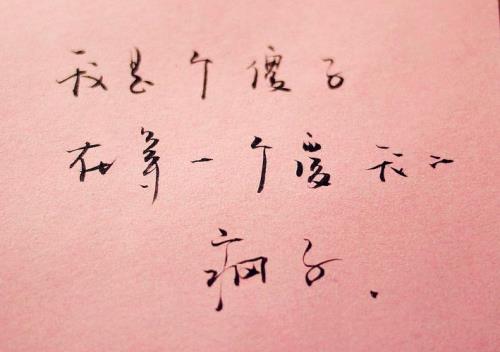 我是个傻子
在等一个爱我的
疯子.